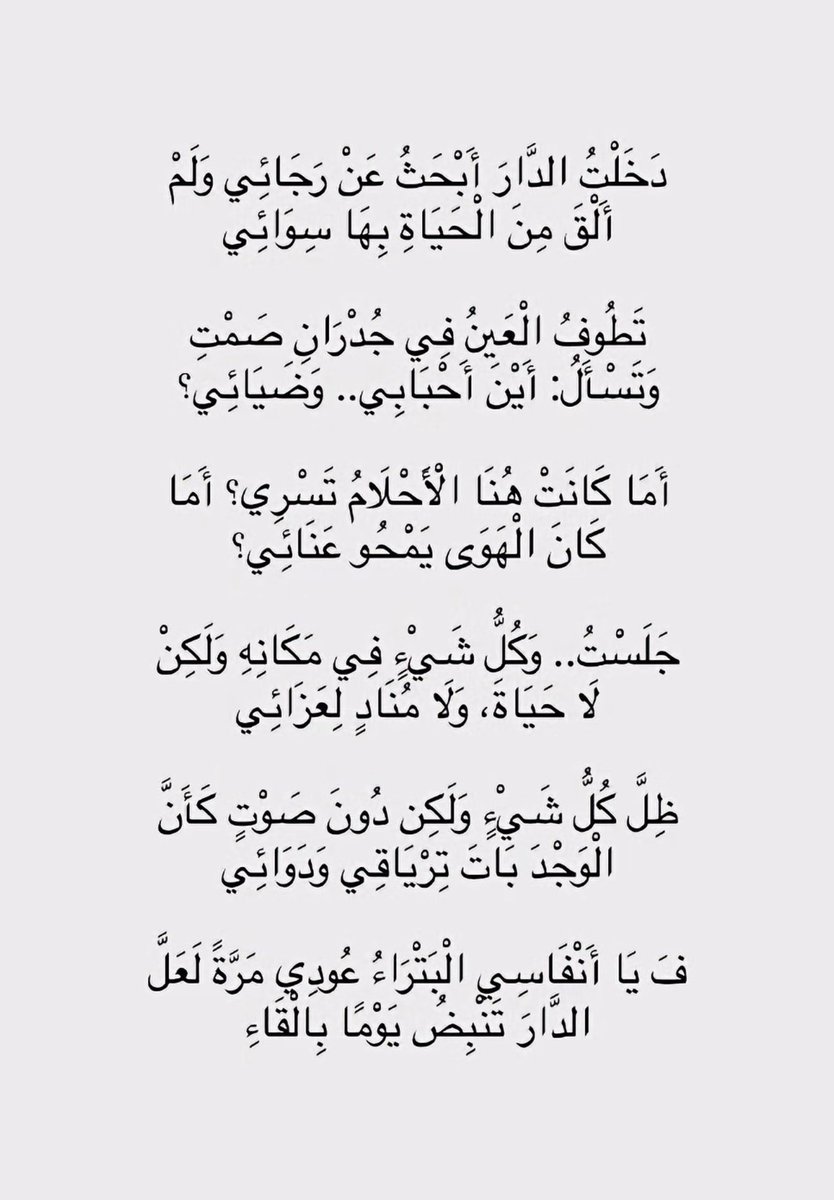 دَخَلْتُ الدَّارَ أَبْحَثُ عَنْ رَجَائِي وَلَمْ
أَلْقَ مِنَ الْحَيَاةِ بِهَا سِوَائِي
تَطُوفُ الْعَينُ فِي جُدْرَانِ صَمْتِ
وَتَسْأَلُ: أَيْنَ أَحْبَابِي.. وَضَيَائِي؟
أَمَا كَانَتْ هُنَا الْأَحْلَامُ تَسْرِي؟ أَمَا
كَانَ الْهَوَى يَمْحُو عَنَائِي؟
جَلَسْتُ.. وَكُلُّ شَيْءٍ فِي مَكَانِهِ وَلَكِنْ
لَا حَيَاةَ، وَلَا مُنَادٍ لِعَزَائِي
ظِلَّ كُلُّ شَيْءٍ وَلَكِن دُونَ صَوْتٍ كَأَنَّ
الْوَجْدَ بَاتَ تِرْيَاقِي وَدَوَائِي
فَ يَا أَنْفَاسِي الْبَتْرَاءُ عُودِي مَرَّةً لَعَلَّ
الدَّارَ تَنْبِضُ يَوْمًا بِالْقَاءِ